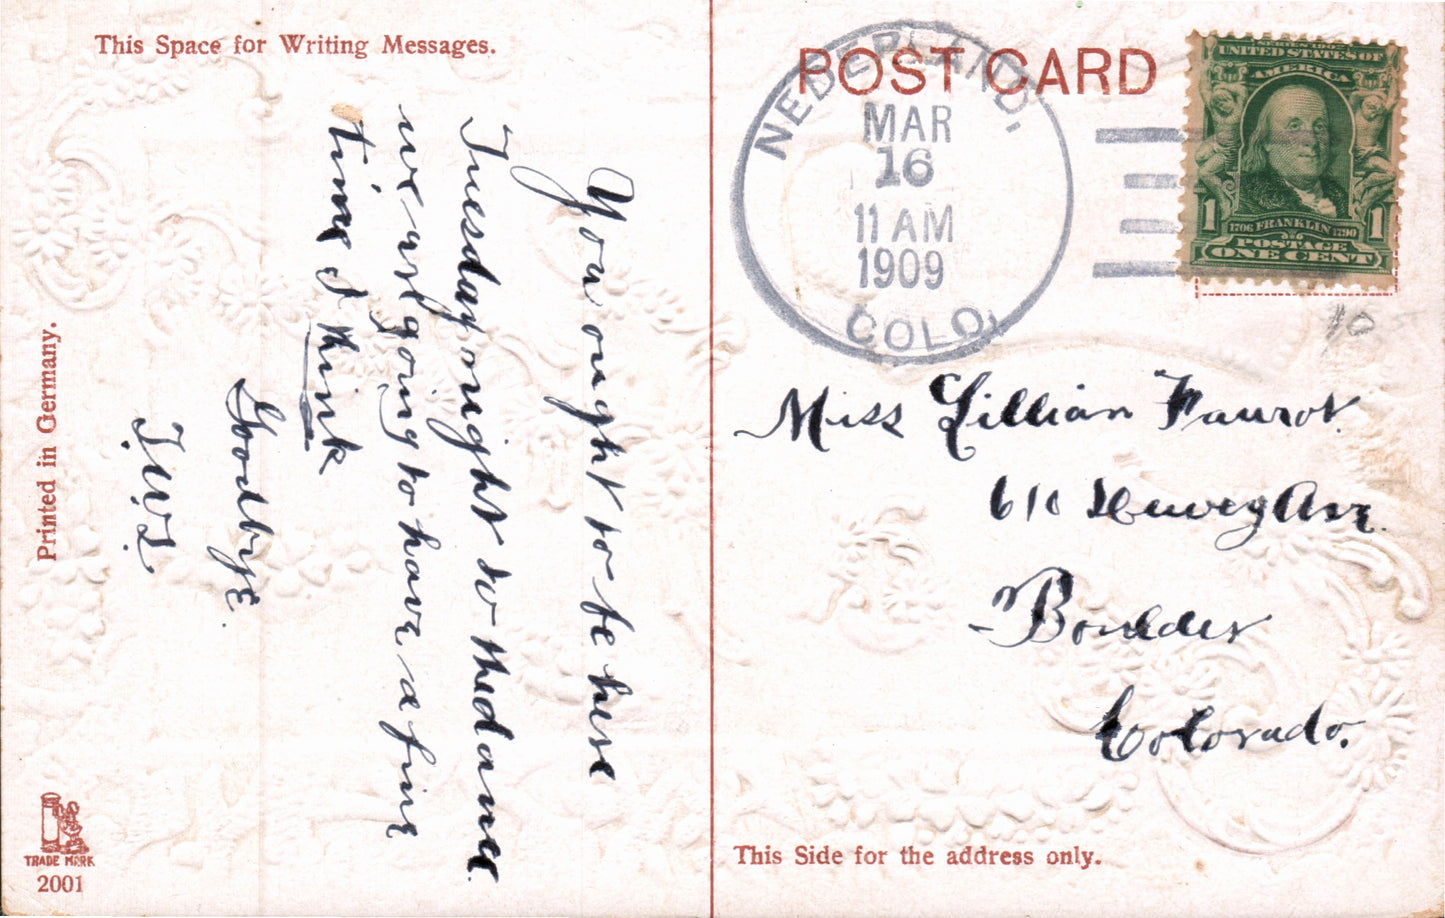 This Space for Writing Messages.
You ought to be here
Tuesday night to the dance
we are going to have a fine
time I think
Goodbye.
Printed in Germany.
TRADE MARK
2001
POST CARD
NEDERLAND,
MAR
16
11 AM
1909
COLO.
SERIES 1902
UNITED STATES OF
AMERICA
1 1706 FRANKLIN 1790 1
POSTAGE
ONE CENT
10
Miss Lillian Faurot
610 Dewey Ave.
Boulder
Colorado.
This Side for the address only.